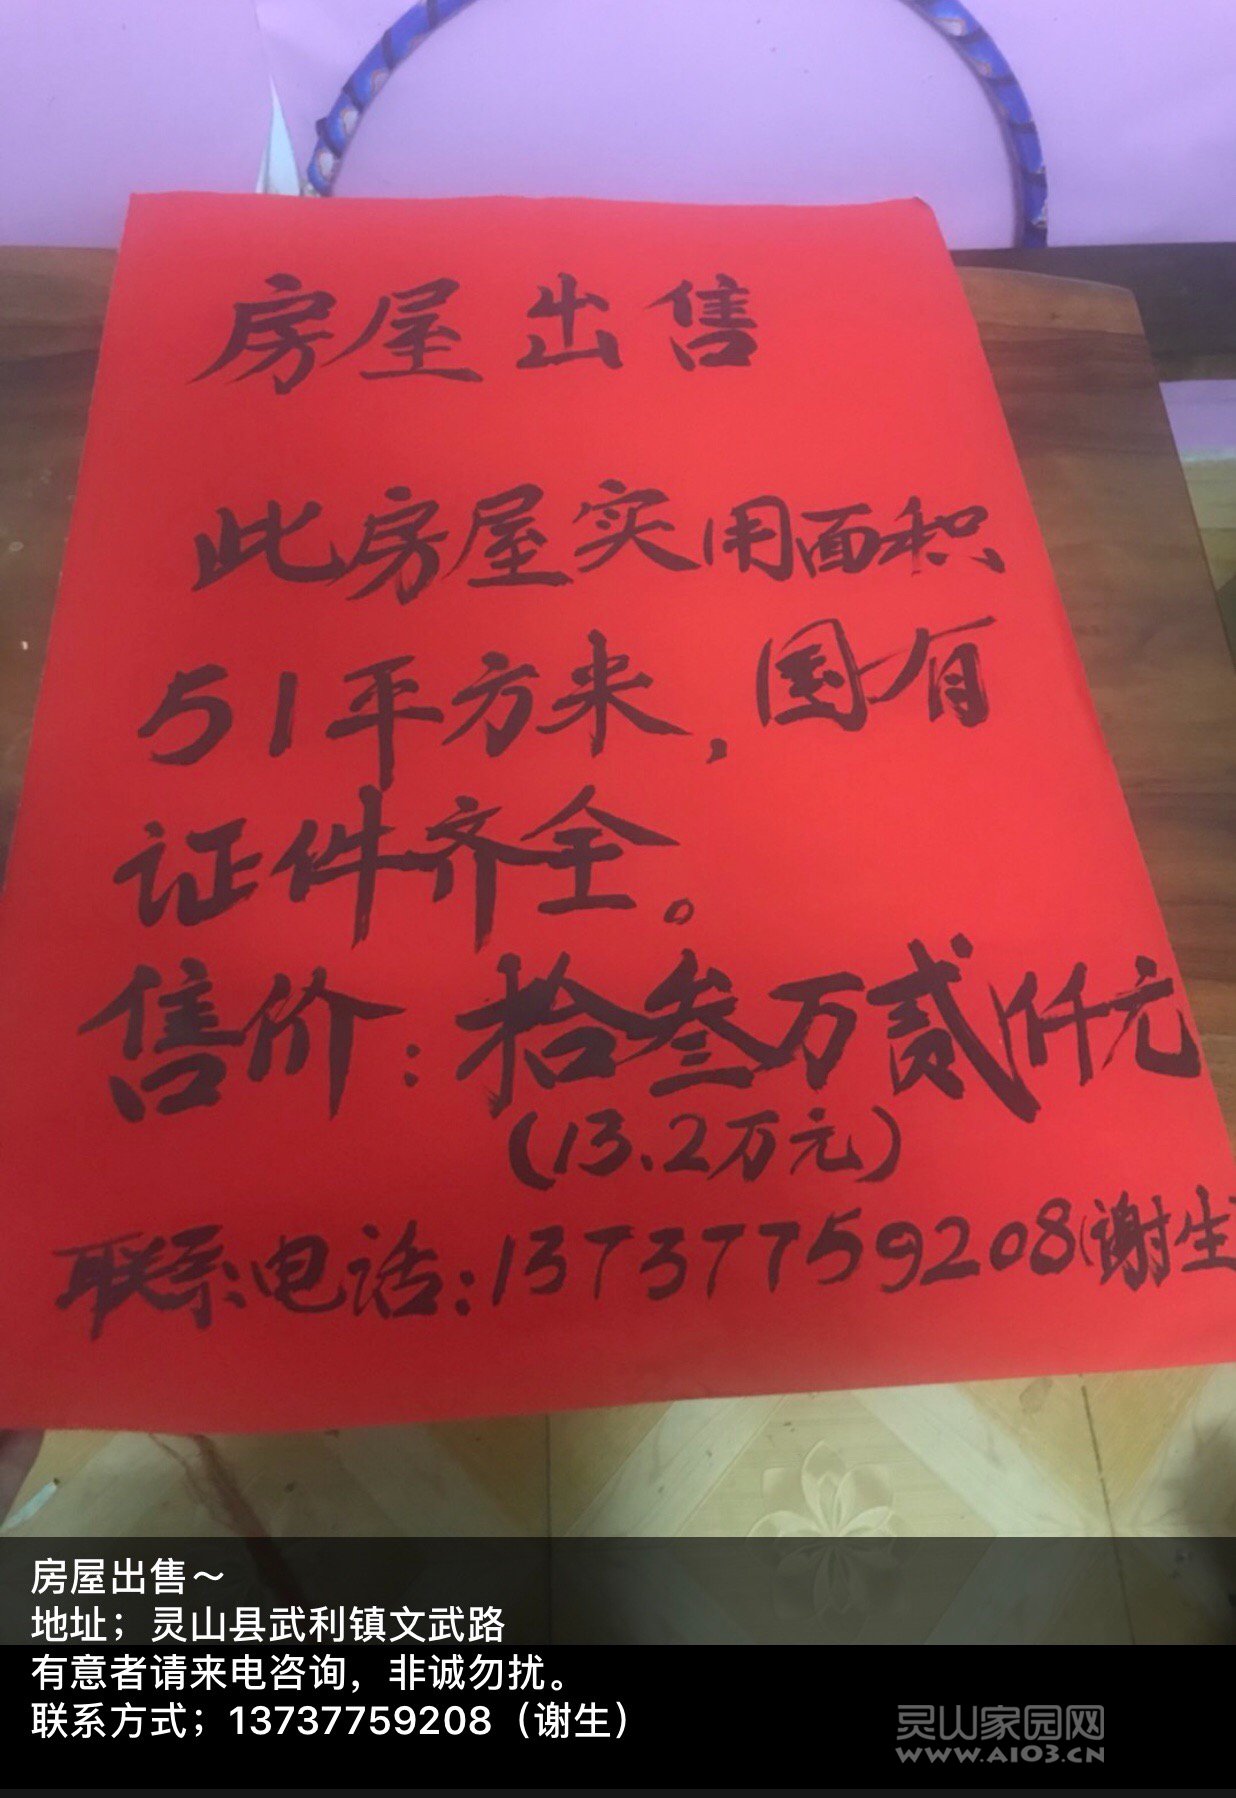 房屋出售
此房屋实用面积
51平方米，国有
证件齐全。
售价：拾叁万贰仟元
（13.2万元）
联系电话：13737759208（谢生
房屋出售～
地址；灵山县武利镇文武路
有意者请来电咨询，非诚勿扰。
联系方式；13737759208（谢生）
灵山家园网
WWW.AIO3.CN